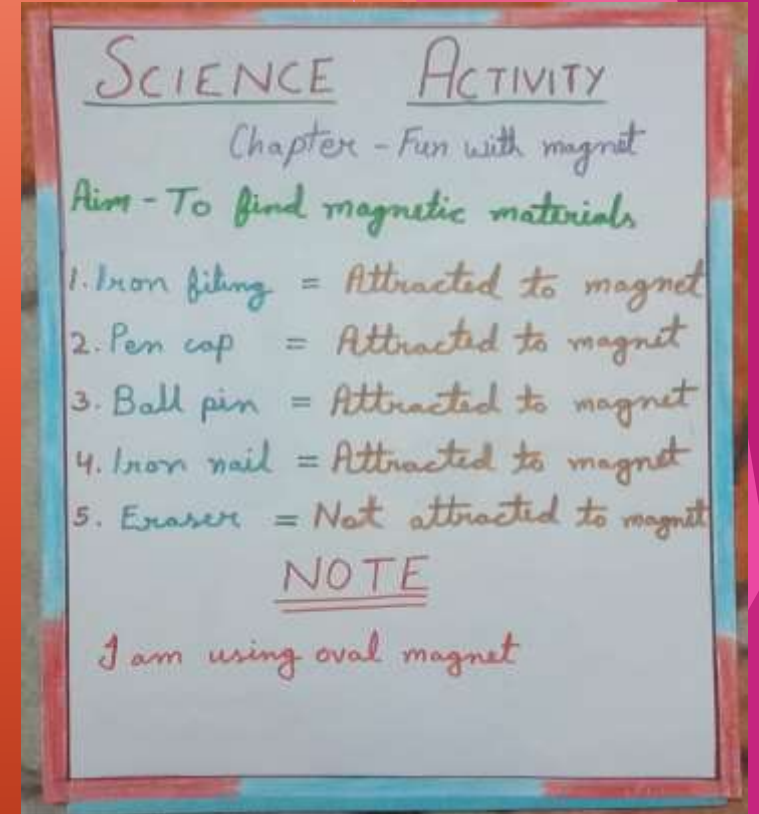 SCIENCE ACTIVITY
Chapter - Fun with magnet
Aim - To find magnetic materials
1. Iron filing = Attracted to magnet
2. Pen cap = Attracted to magnet
3. Ball pin = Attracted to magnet
4. Iron nail = Attracted to magnet
5. Eraser = Not attracted to magnet
NOTE
I am using oval magnet